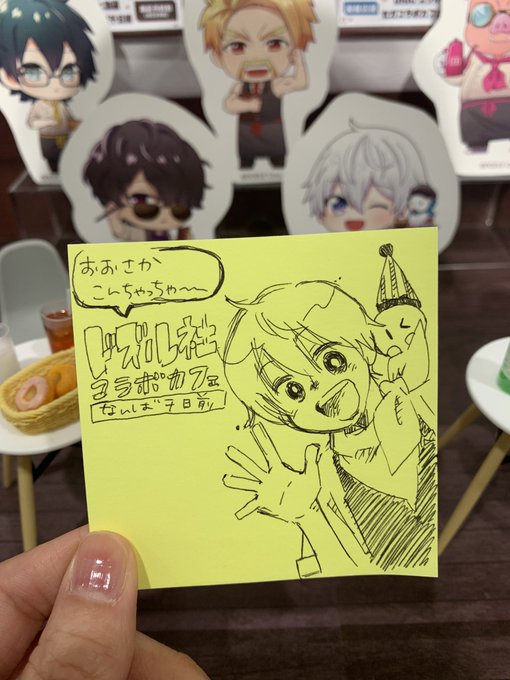 おおさか
こんちゃっちゃ〜〜
ドズル社
コラボカフェ
なんば千日前